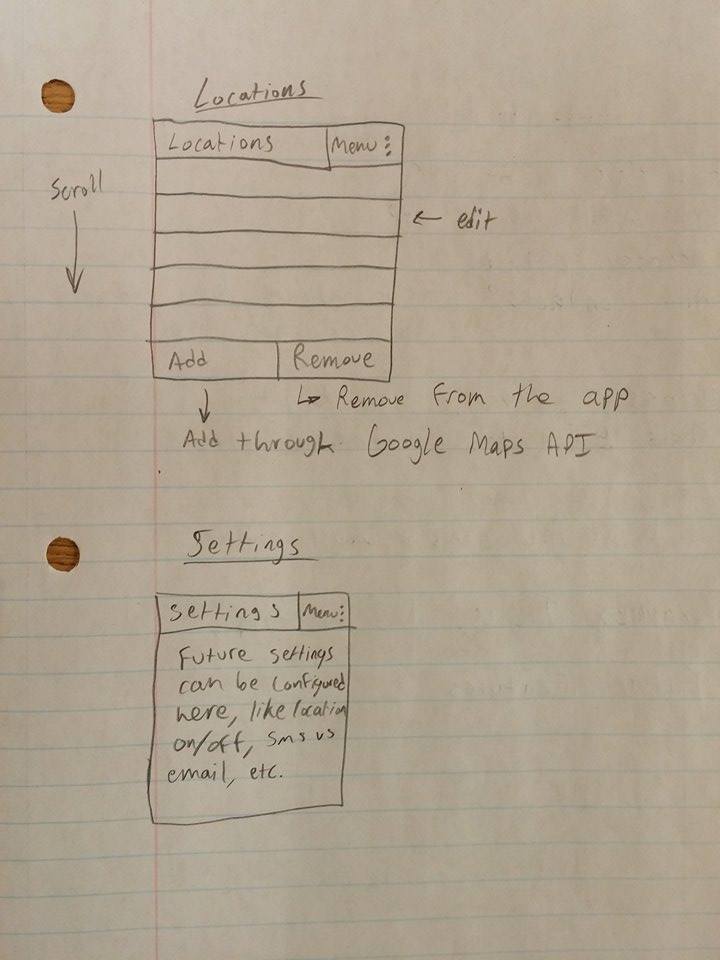 Locations
Locations Menu
Scroll
edit
Add Remove
Remove from the app
Add through Google Maps API
Settings
Settings Menu
Future settings
can be configured
here, like location
on/off, SMS vs
email, etc.